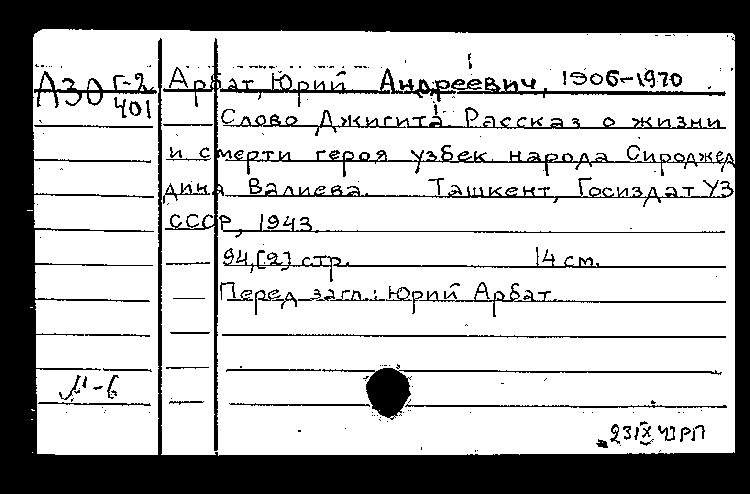 А30 Г-2
401
Арбат, Юрий Андреевич, 1906-1970
Слово Джигита. Рассказ о жизни
и смерти героя узбек. народа Сироджед
дина Валиева. Ташкент, Госиздат УЗ
СССР, 1943.
94,[2] стр. 14 см.
Перед загл.: Юрий Арбат.
М-6
23/IX 43 РП